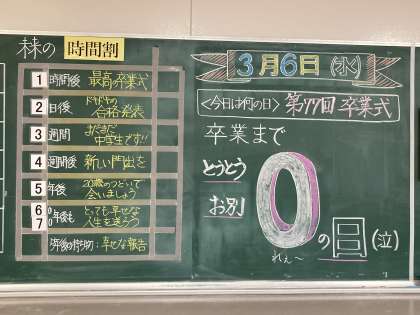 未来の 時間割
1 時間後 最高の卒業式
2 日後 ドキドキの合格発表
3 週間 まだまだ中学生です!!
4 週間後 新しい門出を
5 年後 20歳のつどいで会いましょう
6 0年後も とっても幸せな
7 人生を送ろう
年後の持ち物:幸せな報告
3月6日(水)
<今日は何の日> 第77回 卒業式
卒業まで
とうとう
お別
0の日(泣)
れぇ〜